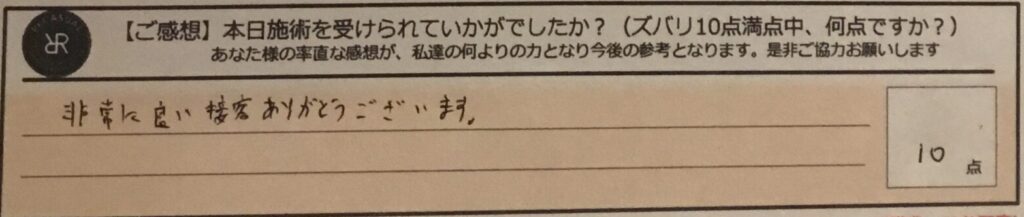 【ご感想】本日施術を受けられていかがでしたか？（ズバリ10点満点中、何点ですか？）
あなた様の率直な感想が、私達の何よりの力となり今後の参考となります。是非ご協力お願いします
非常に良い接客ありがとうございます。
10点